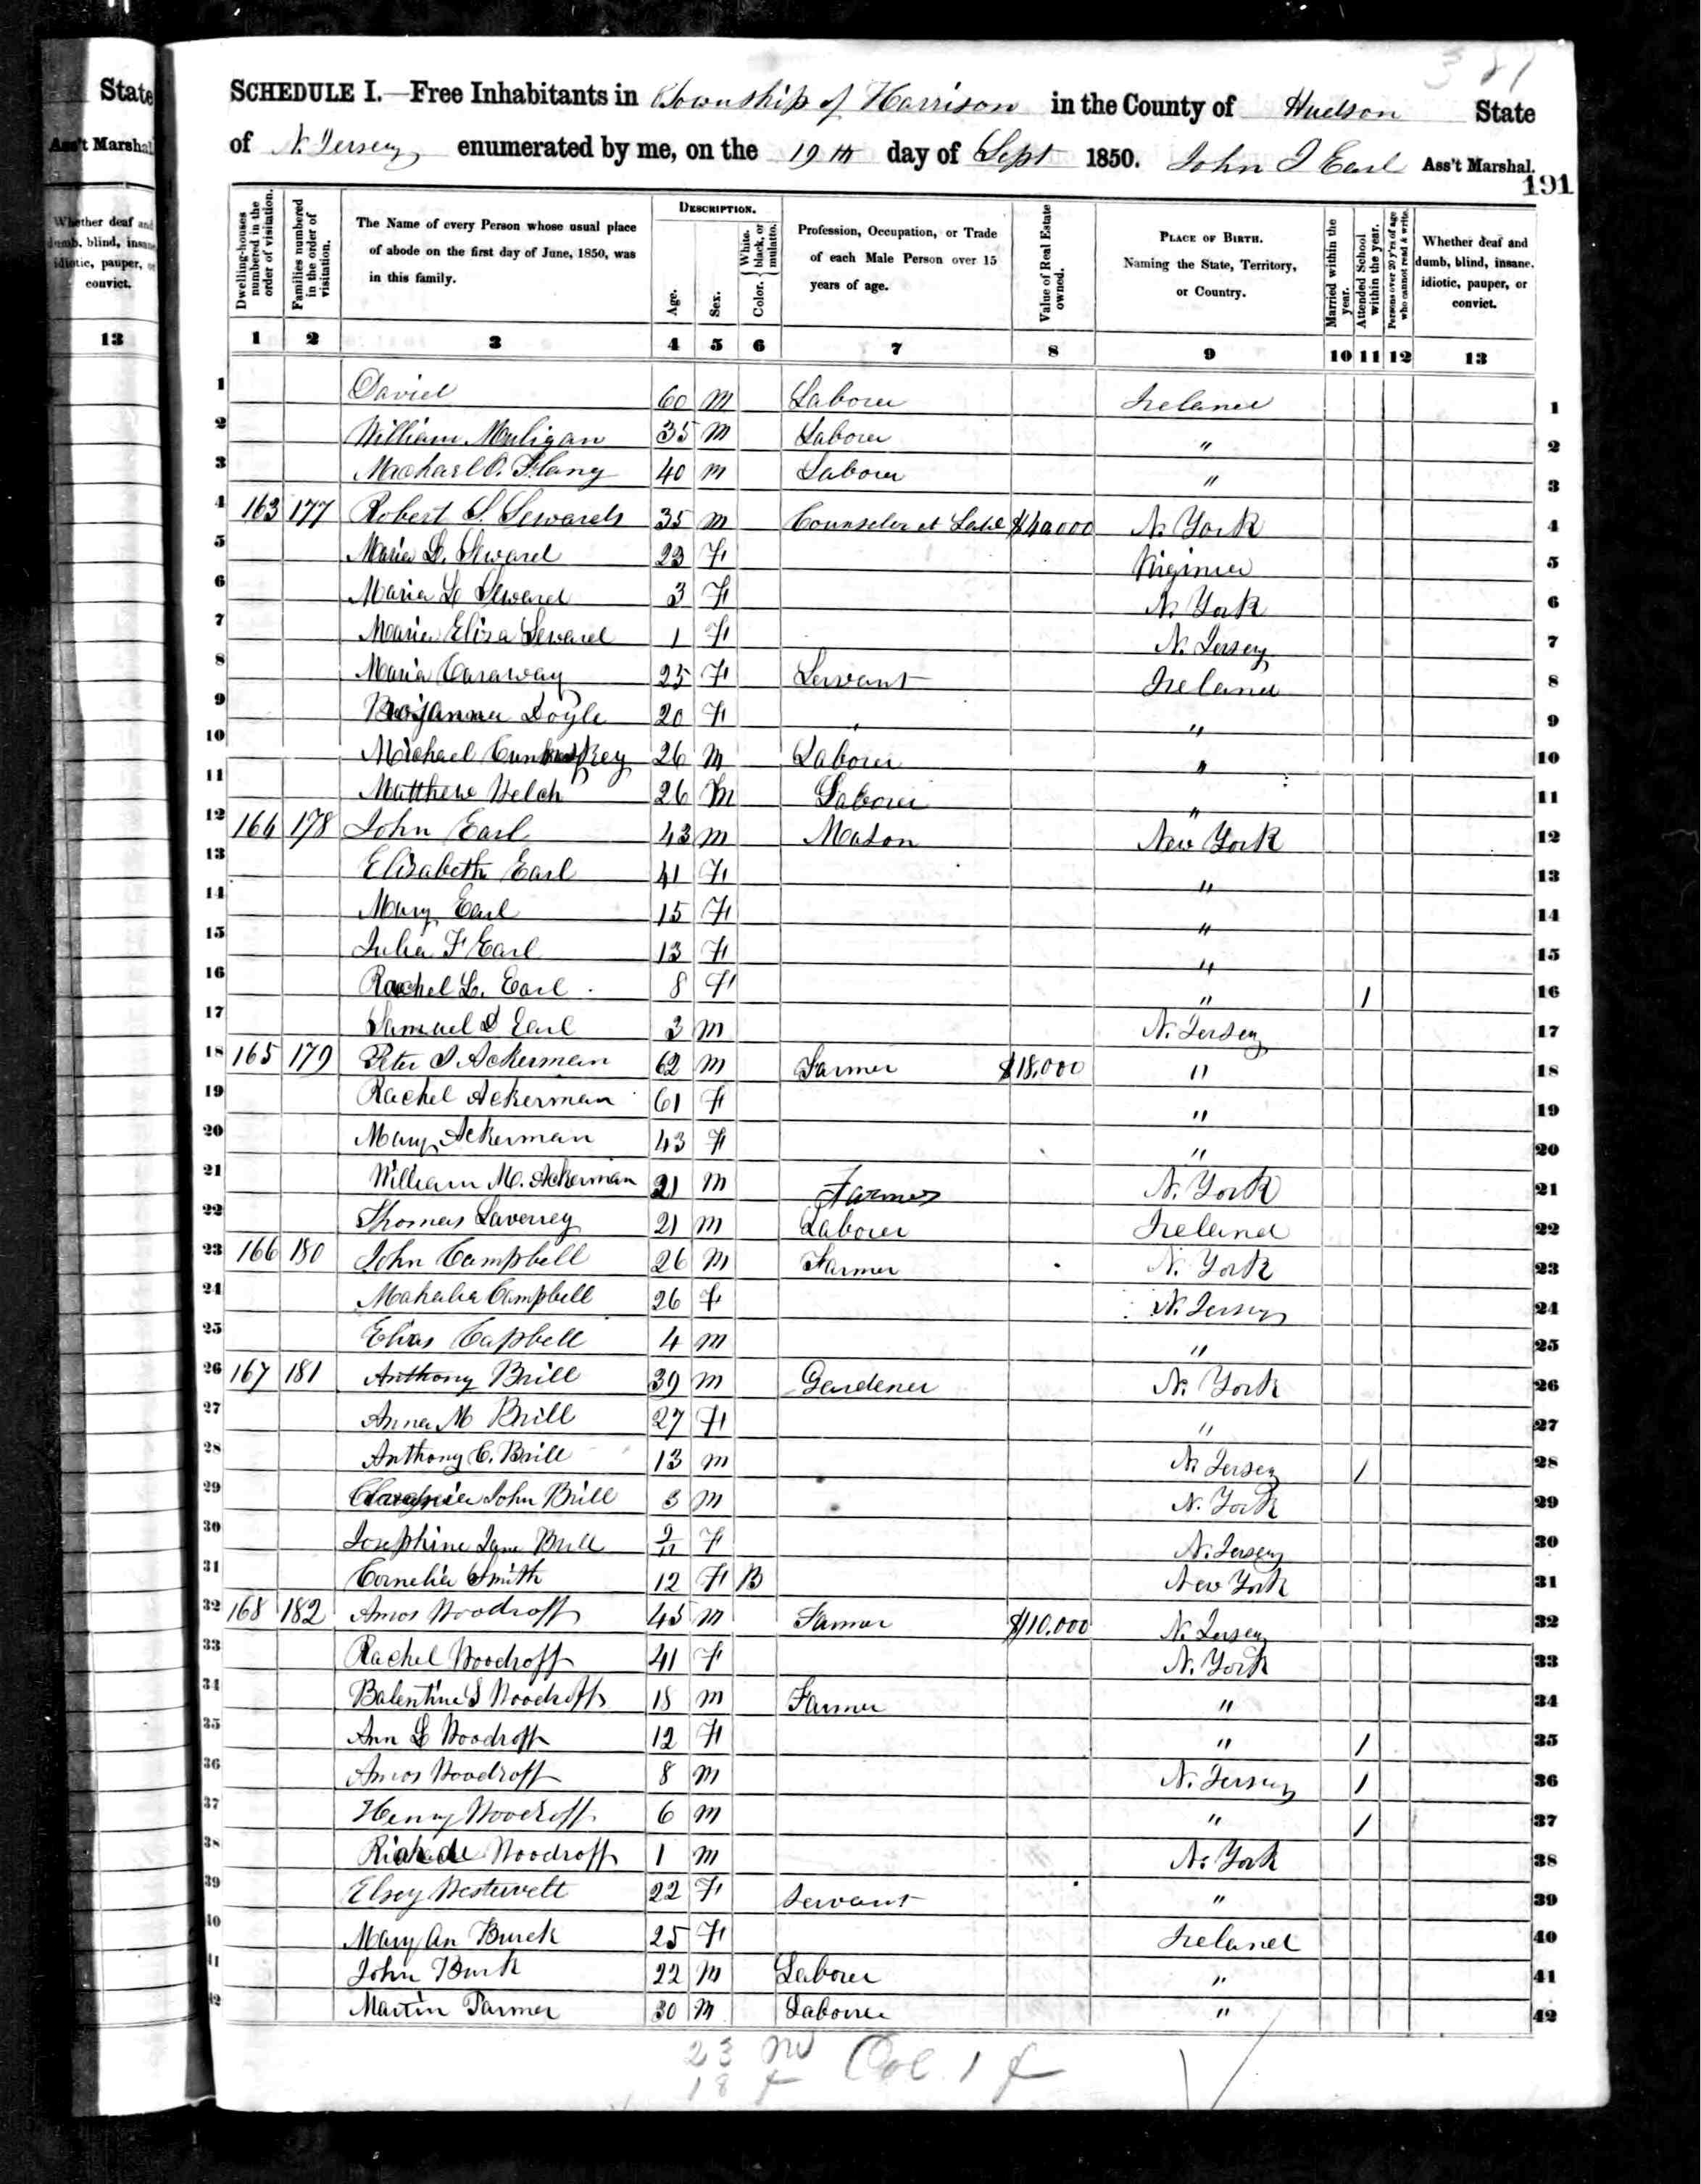 381
State
Ass't Marshal.
Whether deaf and
dumb, blind, insane,
idiotic, pauper, or
convict.
13
SCHEDULE I.—Free Inhabitants in Township of Harrison in the County of Hudson State
of N. Jersey enumerated by me, on the 19th day of Sept 1850. John J Earl Ass't Marshal.
191
Dwelling-houses numbered in the order of visitation.
Families numbered in the order of visitation.
The Name of every Person whose usual place of abode on the first day of June, 1850, was in this family.
DESCRIPTION.
Age.
Sex.
Color. White, black, or mulatto.
Profession, Occupation, or Trade of each Male Person over 15 years of age.
Value of Real Estate owned.
PLACE OF BIRTH. Naming the State, Territory, or Country.
Married within the year.
Attended School within the year.
Persons over 20 y'rs of age who cannot read & write.
Whether deaf and dumb, blind, insane, idiotic, pauper, or convict.
1 2 3 4 5 6 7 8 9 10 11 12 13
1 Daviel 60 M Laborer Ireland 1
2 William Muligan 35 M Laborer " 2
3 Michael O. 40 M Labourer " 3
4 163 177 Robert S. Sewards 35 M Counseler at Law $40000 N. York 4
5 Maria L. Seward 23 F Virginia 5
6 Maria L Seward 3 F N. York 6
7 Maria Eliza Seward 1 F N. Jersey 7
8 Maria Caraway 25 F Servant Ireland 8
9 Doyle 20 F " " 9
10 Michael 26 M Laborer " 10
11 Matthew Welch 26 M Laborer " 11
12 164 178 John Earl 43 M Mason New York 12
13 Elizabeth Earl 41 F " 13
14 Mary Earl 15 F " 14
15 Julia F Earl 13 F " 15
16 Rachel L. Earl 8 F " 1 16
17 Samuel D Earl 3 M N. Jersey 17
18 165 179 Peter J. Ackerman 62 M Farmer $18,000 " 18
19 Rachel Ackerman 61 F " 19
20 Mary Ackerman 43 F " 20
21 William M. Ackerman 21 M Farmer N. York 21
22 Thomas Laverrey 21 M Laborer Ireland 22
23 166 180 John Campbell 26 M Farmer N. York 23
24 Mahalia Campbell 26 F N. Jersey 24
25 Elias Capbell 4 M " 25
26 167 181 Anthony Brill 39 M Gardener N. York 26
27 Anna M Brill 27 F " 27
28 Anthony C. Brill 13 M N. Jersey 1 28
29 John Brill 3 M N. York 29
30 Josephine Jane Brill F N. Jersey 30
31 Cornelia Smith 12 F B New York 31
32 168 182 Amos Woodroff 45 M Farmer $10,000 N. Jersey 32
33 Rachel Woodroff 41 F N. York 33
34 Balentine S Woodroff 18 M Farmer " 34
35 Ann L Woodroff 12 F " 1 35
36 Amos Woodroff 8 M N. Jersey 1 36
37 Henry Woodroff 6 M " 1 37
38 Woodroff 1 M N. York 38
39 Elsey Westervelt 22 F Servant " 39
40 Mary An Burek 25 F Ireland 40
41 John Burk 22 M Laborer " 41
42 Martin Parmer 30 M Laborer " 42
23 M Col. 1 f
18 f